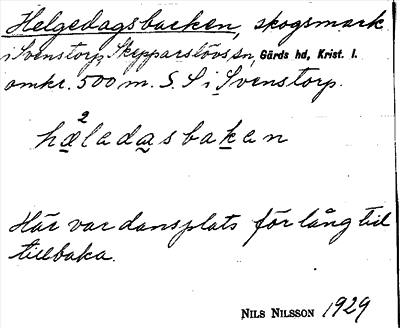 Helgedagsbacken, skogsmark
i Svenstorp, Skepparslövs sn, Gärds hd, Krist. l.
omkr. 500 m. S. S i Svenstorp.
hæ²ledasbaken
Här var dansplats för lång tid
tillbaka.
NILS NILSSON 1929